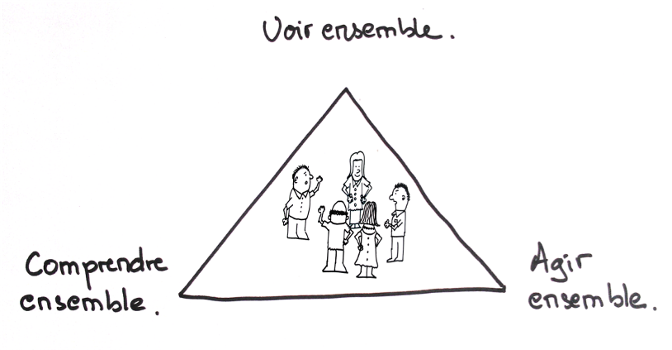 Voir ensemble.
Comprendre
ensemble.
Agir
ensemble.